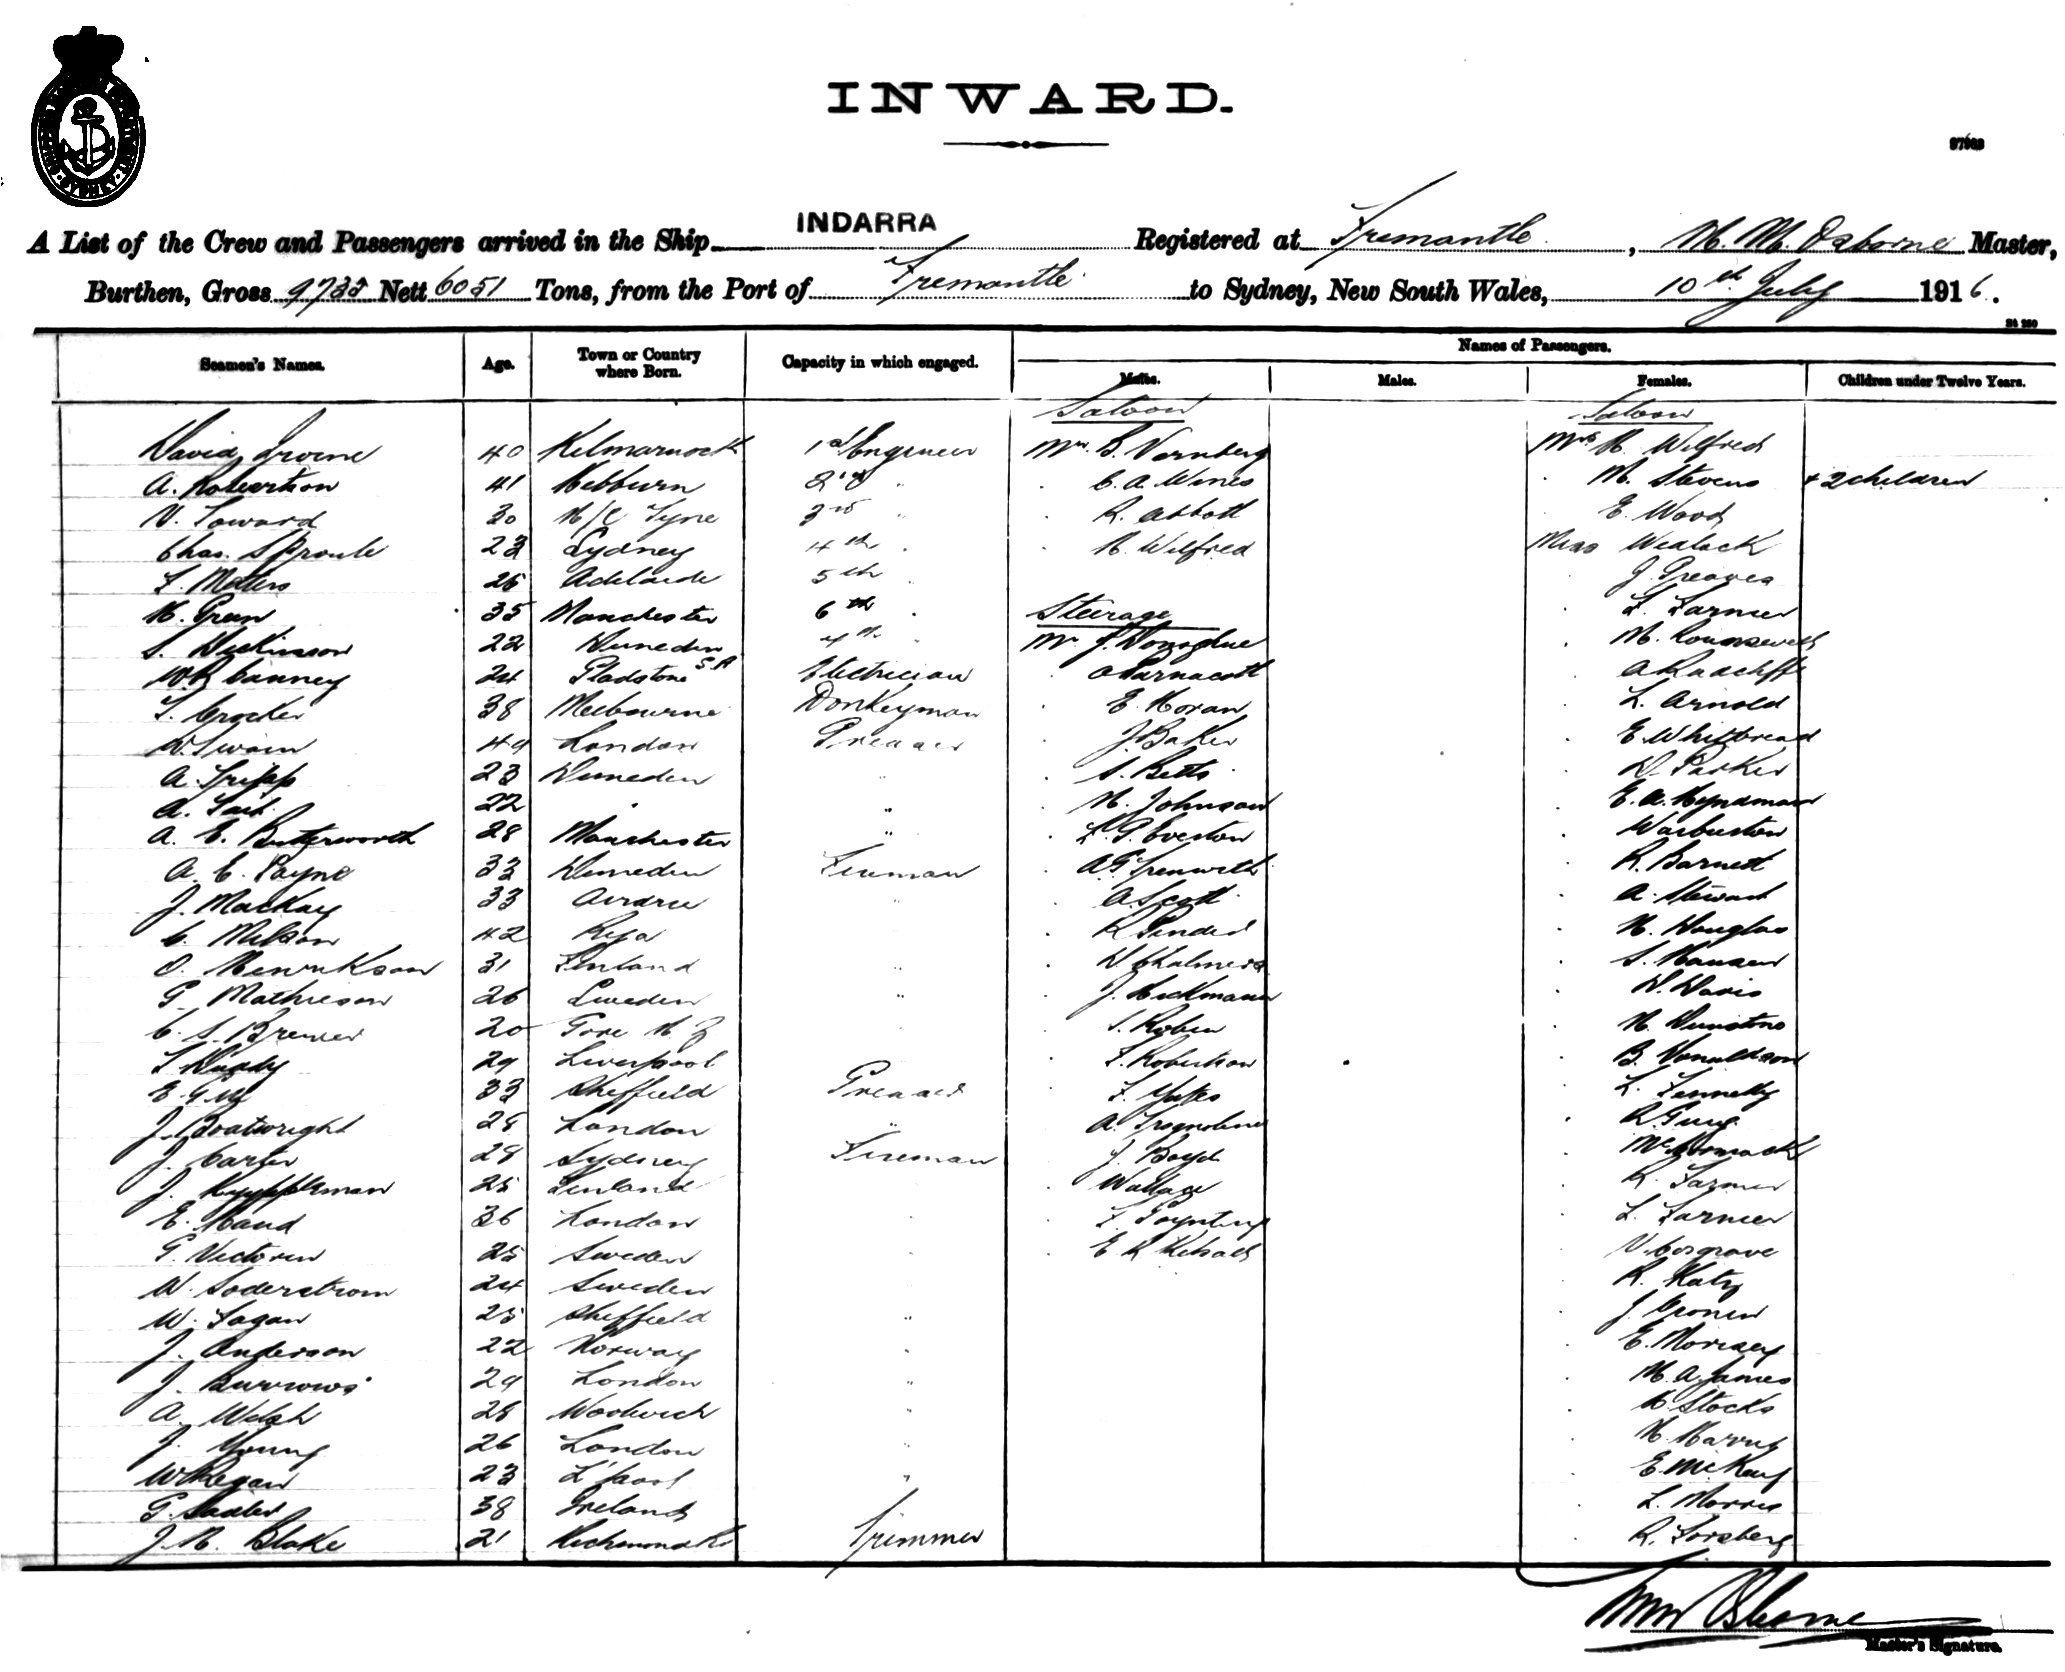 INWARD.
A List of the Crew and Passengers arrived in the Ship INDARRA Registered at Fremantle, M. M. Osborne Master,
Burthen, Gross 9735 Nett 6051 Tons, from the Port of Fremantle to Sydney, New South Wales, 10th July 1916.
Names of Passengers.
Seamen's Names. Age. Town or Country where Born. Capacity in which engaged. Males. Males. Females. Children under Twelve Years.
Saloon Saloon
David Irvine 40 Kilmarnock 1st Engineer Mr. B. Vernberg Mrs N. Wilfred
A. Robertson 41 Hebburn 2nd " C. A. Wines M. Stevens + 2 children
30 N/C Tyne 3rd " R. Abbott E. Wood
Chas. Sproule 23 Sydney 4th " N. Wilfred Miss Wedlock
25 Adelaide 5th " J. Greaves
H. Green 35 Manchester 6th " Steerage L. Farmer
S. Dickinson 22 Dunedin 4th " Mr J. Donoghue M. Rounsevell
24 Gladstone S.A Electrician A Radcliffe
T. Crocker 38 Melbourne Donkeyman E. Horan L. Arnold
D. Swain 49 London Greaser J. Baker E. Whitbread
A. Tripp 23 Dunedin " S. Betts D. Parker
A. Tait 22 " " N. Johnson E. A. Hyndman
A. E. Butterworth 28 Manchester " L. G. Everton Warburton
A. E. Payne 33 Dunedin Fireman A G Trenwith R. Barnett
J. Mackay 33 Airdrie " A. Scott A. Stewart
C. Nelson 42 Riga R Pinder H. Douglas
O. Henrikson 31 Finland " D. Chalmers S. Hansen
G. Mathieson 26 Sweden " J. Hickmann D. Davis
C. S. Bremer 20 Gore N Z S. Rubin N. Dunstone
29 Liverpool F. Robertson B. Donaldson
33 Sheffield Greaser F. Yates L. Fennelly
J. Boatwright 28 London " A.
J. Carter 28 Sydney Fireman J. Boyd McCormack
25 Finland Wallace R. Farmer
E. Hand 36 London F. Poynting L. Farmer
G. Victorin 25 Sweden E R V. Cosgrave
W. Soderstrom 24 Sweden R. Katz
W. Fagan 25 Sheffield " J. Cronin
J. Anderson 22 Norway " E. Morisey
J. Burrows 29 London " M. A. James
A. Welsh 28 Woolwich " Stocks
J. Young 26 London "
W Regan 23 L'pool " E. McKay
G. Sadler 38 Ireland L. Morris
J. H. Blake 21 Richmond Trimmer R. Forsberg
M M Osborne
Master's Signature.